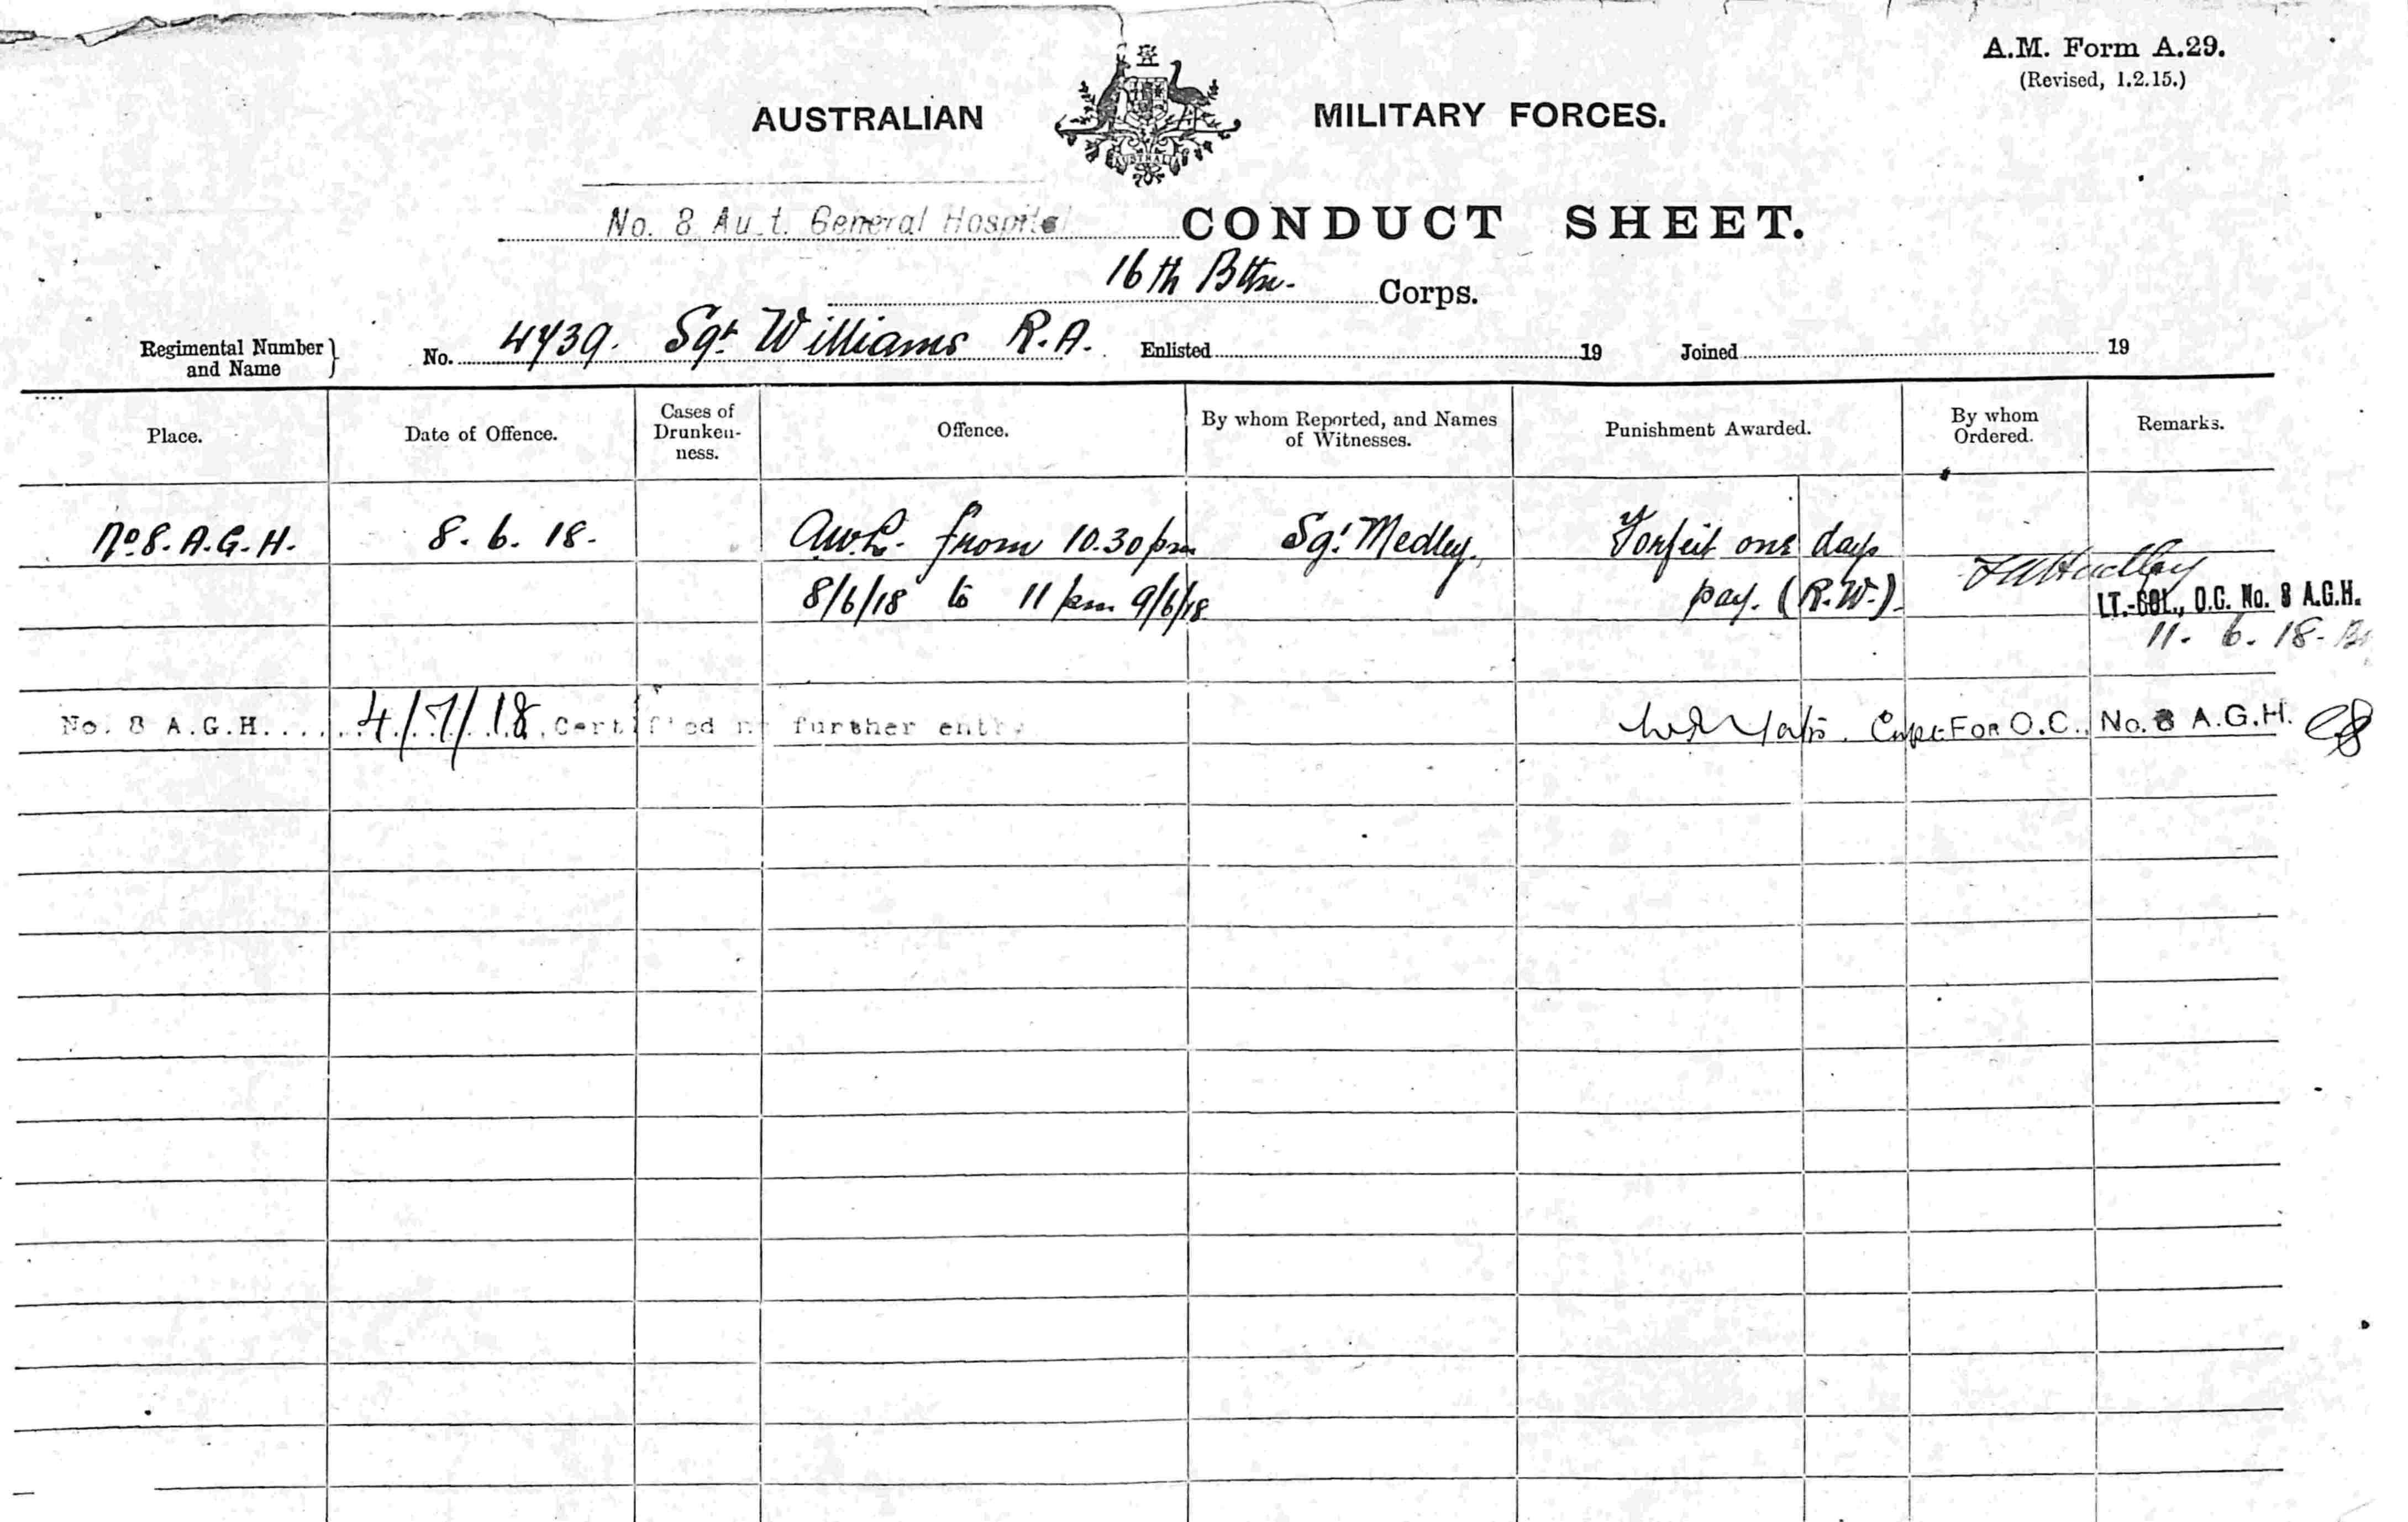 A.M. Form A.29.
(Revised, 1.2.15.)
AUSTRALIAN MILITARY FORCES.
AUSTRALIA
No. 8 Au t. General Hospital CONDUCT SHEET.
16th Bttn. Corps.
Regimental Number and Name } No. 4439. Sgt Williams R.A. Enlisted 19 Joined 19
Place. Date of Offence. Cases of Drunken-ness. Offence. By whom Reported, and Names of Witnesses. Punishment Awarded. By whom Ordered. Remarks.
No 8. A.G.H. 8. 6. 18. A.W.L. from 10.30 pm Sgt Medley. Forfeit one days
8/6/18 to 11 pm 9/6/18 pay. (R.W.).
LT.-COL., O.C. No. 8 A.G.H.
11. 6. 18.
No. 8 A.G.H. 4/7/18 Certified no further entry Capt FOR O.C., No. 8 A.G.H.